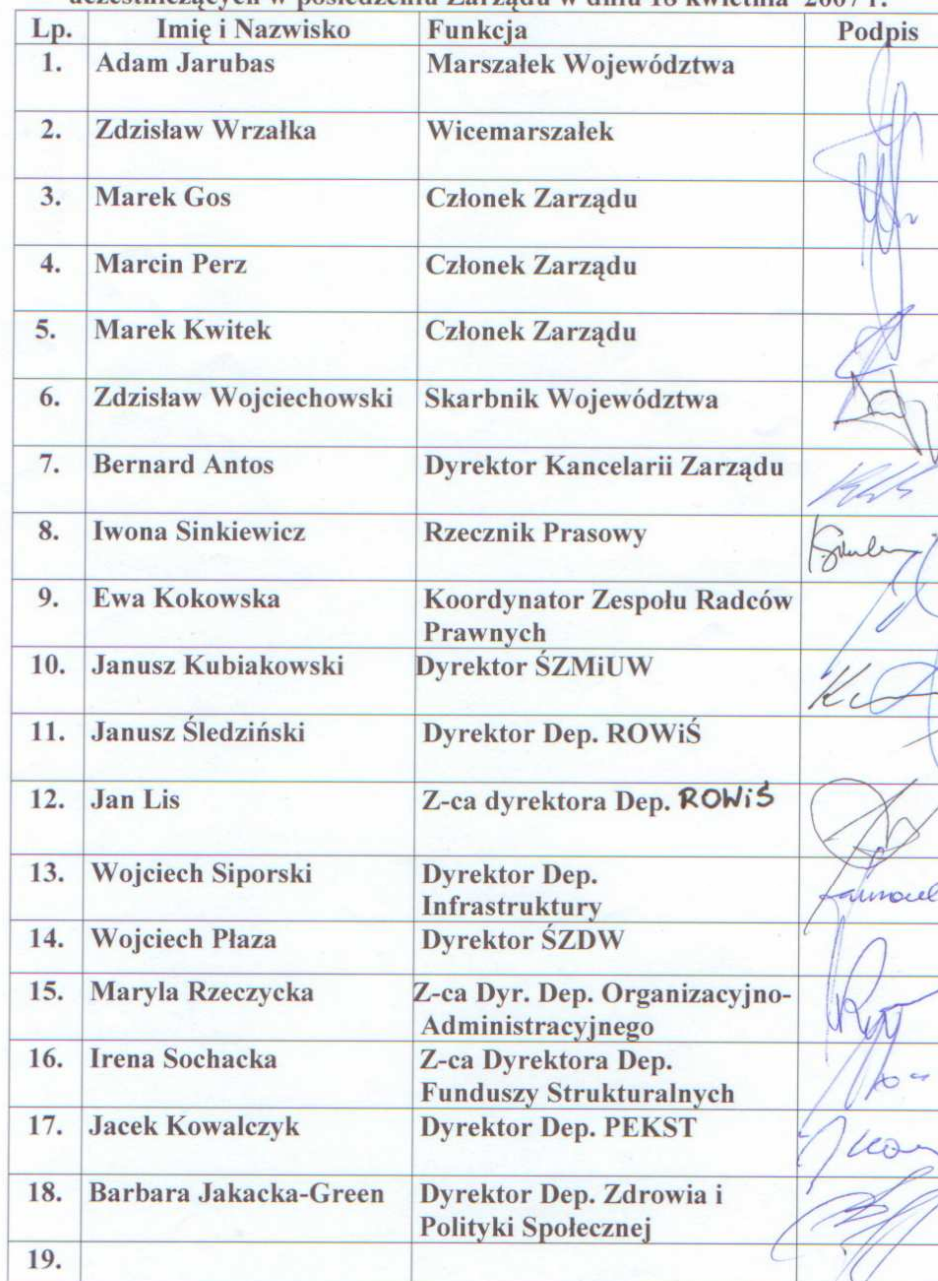 uczestniczących w posiedzeniu Zarządu w dniu 18 kwietnia 2007 r.
Lp. Imię i Nazwisko Funkcja Podpis
1. Adam Jarubas Marszałek Województwa
2. Zdzisław Wrzałka Wicemarszałek
3. Marek Gos Członek Zarządu
4. Marcin Perz Członek Zarządu
5. Marek Kwitek Członek Zarządu
6. Zdzisław Wojciechowski Skarbnik Województwa
7. Bernard Antos Dyrektor Kancelarii Zarządu
8. Iwona Sinkiewicz Rzecznik Prasowy
9. Ewa Kokowska Koordynator Zespołu Radców
Prawnych
10. Janusz Kubiakowski Dyrektor ŚZMiUW
11. Janusz Śledziński Dyrektor Dep. ROWiŚ
12. Jan Lis Z-ca dyrektora Dep. ROWiŚ
13. Wojciech Siporski Dyrektor Dep.
Infrastruktury
14. Wojciech Płaza Dyrektor ŚZDW
15. Maryla Rzeczycka Z-ca Dyr. Dep. Organizacyjno-
Administracyjnego
16. Irena Sochacka Z-ca Dyrektora Dep.
Funduszy Strukturalnych
17. Jacek Kowalczyk Dyrektor Dep. PEKST
18. Barbara Jakacka-Green Dyrektor Dep. Zdrowia i
Polityki Społecznej
19.